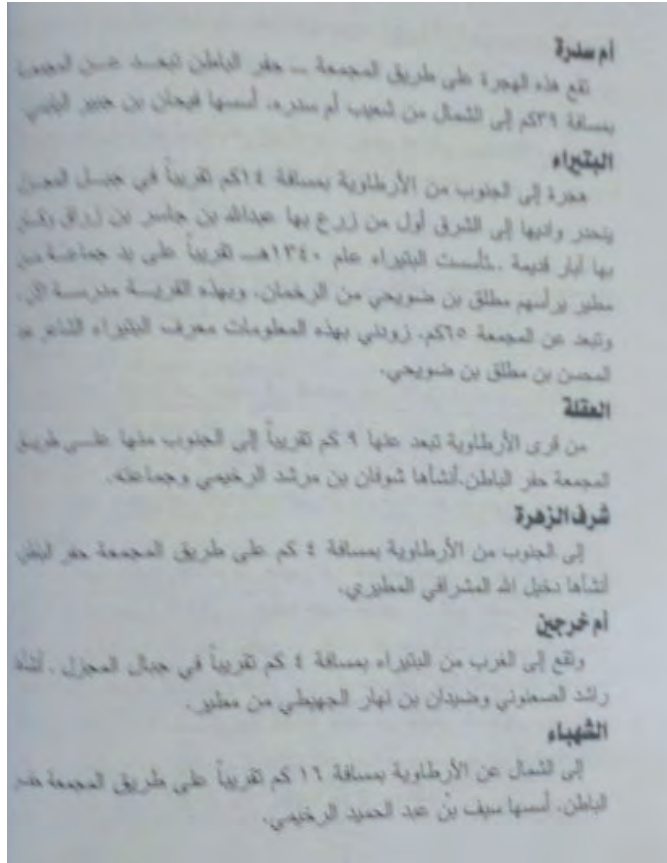 أم سدرة
تقع هذه الهجرة على طريق المجمعة ــ حفر الباطن تبعد عن المجمعة
بمسافة ٣٩كم إلى الشمال من شعيب أم سدره، أسسها فيحان بن
البتيراء
هجرة إلى الجنوب من الأرطاوية بمسافة ١٤كم تقريباً في جبل
ينحدر واديها إلى الشرق أول من زرع بها عبدالله بن جاسر بن زراق
بها آبار قديمة .تأسست البتيراء عام ١٣٤٠هــ تقريباً على يد جماعة من
مطير يرأسهم مطلق بن ضويحي من الرخمان، وبهذه القرية مدرسة
وتبعد عن المجمعة ٦٥كم، زودني بهذه المعلومات معرف البتيراء الشاعر عبد
المحسن بن مطلق بن ضويحي.
العقلة
من قرى الأرطاوية تبعد عنها ٩ كم تقريباً إلى الجنوب منها على طريق
المجمعة حفر الباطن.أنشأها شوفان بن مرشد الرخيمي وجماعته.
شرف الزهرة
إلى الجنوب من الأرطاوية بمسافة ٤ كم على طريق المجمعة حفر الباطن
أنشأها دخيل الله المشرافي المطيري.
أم خرجين
وتقع إلى الغرب من البتيراء بمسافة ٤ كم تقريباً في جبال المجزل . أنشأها
راشد الصعنوني وضيدان بن نهار الجهيطي من مطير.
الشهباء
إلى الشمال عن الأرطاوية بمسافة ١٦ كم تقريباً على طريق المجمعة حفر
الباطن، أسسها سيف بن عبد الحميد الرخيمي.